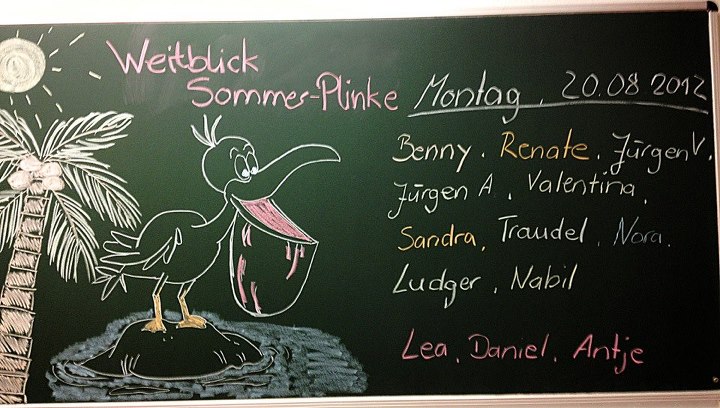 Weitblick
Sommer-Plinke
Montag, 20.08 2012
Benny, Renate, Jürgen V.,
Jürgen A, Valentina,
Sandra, Traudel, Nora,
Ludger, Nabil
Lea, Daniel, Antje